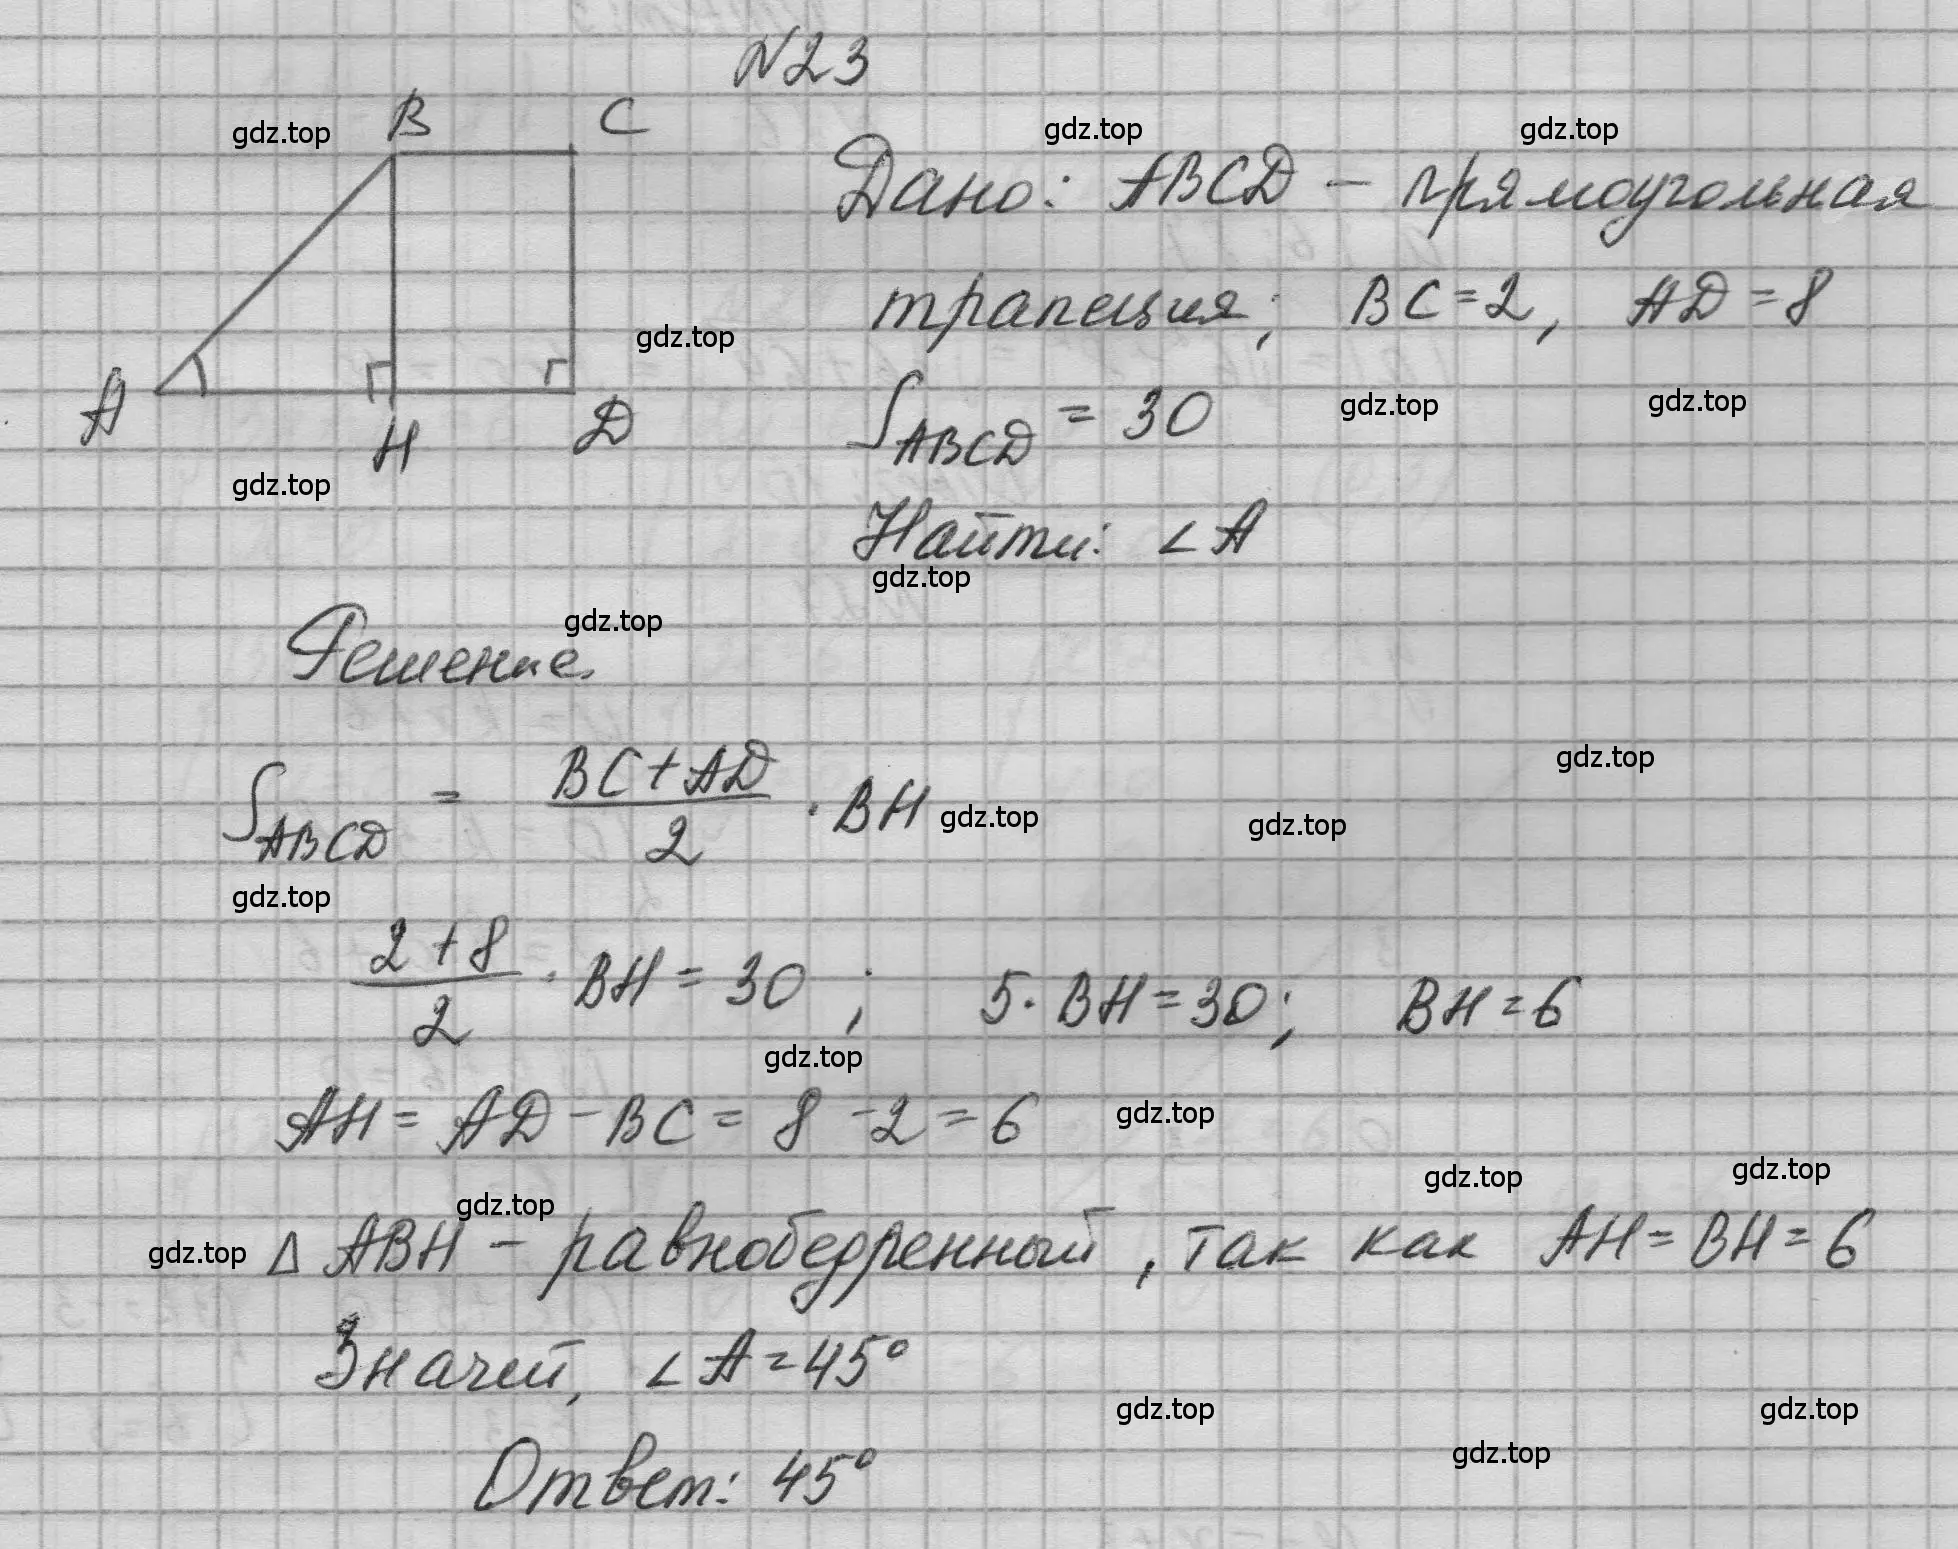 N23
B C
gdz.top
gdz.top
gdz.top
Дано: ABCD – прямоугольная
трапеция; BC=2, AD=8
gdz.top
A H D
S_ABCD = 30
gdz.top
gdz.top
gdz.top
Найти: ∠A
gdz.top
gdz.top
Решение.
S_ABCD = (BC+AD)/2 · BH
gdz.top
gdz.top
gdz.top
gdz.top
(2+8)/2 · BH = 30 ; 5·BH=30; BH=6
gdz.top
AH = AD – BC = 8 – 2 = 6
gdz.top
gdz.top
gdz.top
gdz.top
gdz.top
Δ ABH – равнобедренный, так как AH=BH=6
Значит, ∠A=45°
gdz.top
gdz.top
gdz.top
Ответ: 45°